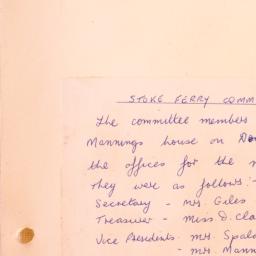 STOKE FERRY COMM
The committee members
Mannings house on
the offices for the
They were as follows:-
Secretary - Mrs. Giles
Treasurer - Miss D. Cla
Vice Presidents - Mrs. Spal
- Mrs. Mann